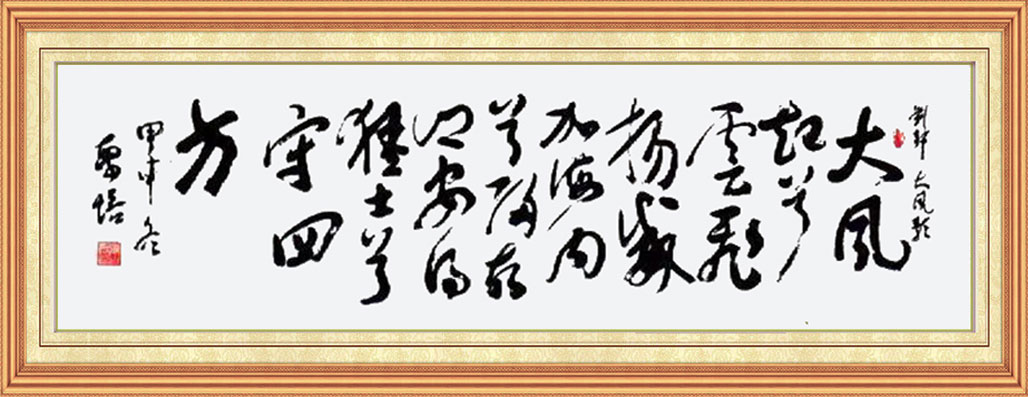 劉邦 大風歌
大風
起兮
雲飛
揚威
加海内
兮歸故
鄉安得
猛士兮
守四
方
甲申冬